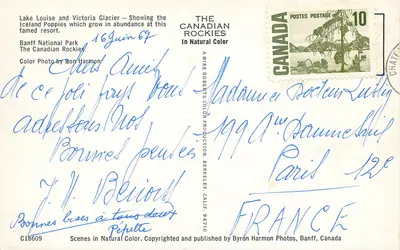 Lake Louise and Victoria Glacier – Showing the
Iceland Poppies which grow in abundance at this
famed resort.
Banff National Park
The Canadian Rockies
Color Photo by Don Harmon
THE
CANADIAN
ROCKIES
In Natural Color
CANADA
POSTES POSTAGE
10
16 Juin 67
Chers Amis
de ce joli pays vous
adressons nos
Bonnes pensées
J. H. Benoist
Bonnes bises à tous deux
Pépette
Madame et Docteur
199 Ave Daumesnil
Paris 12e
FRANCE
A MIKE ROBERTS COLOR PRODUCTION BERKELEY, CALIF. 94710
C18609
Scenes in Natural Color. Copyrighted and published by Byron Harmon Photos, Banff, Canada